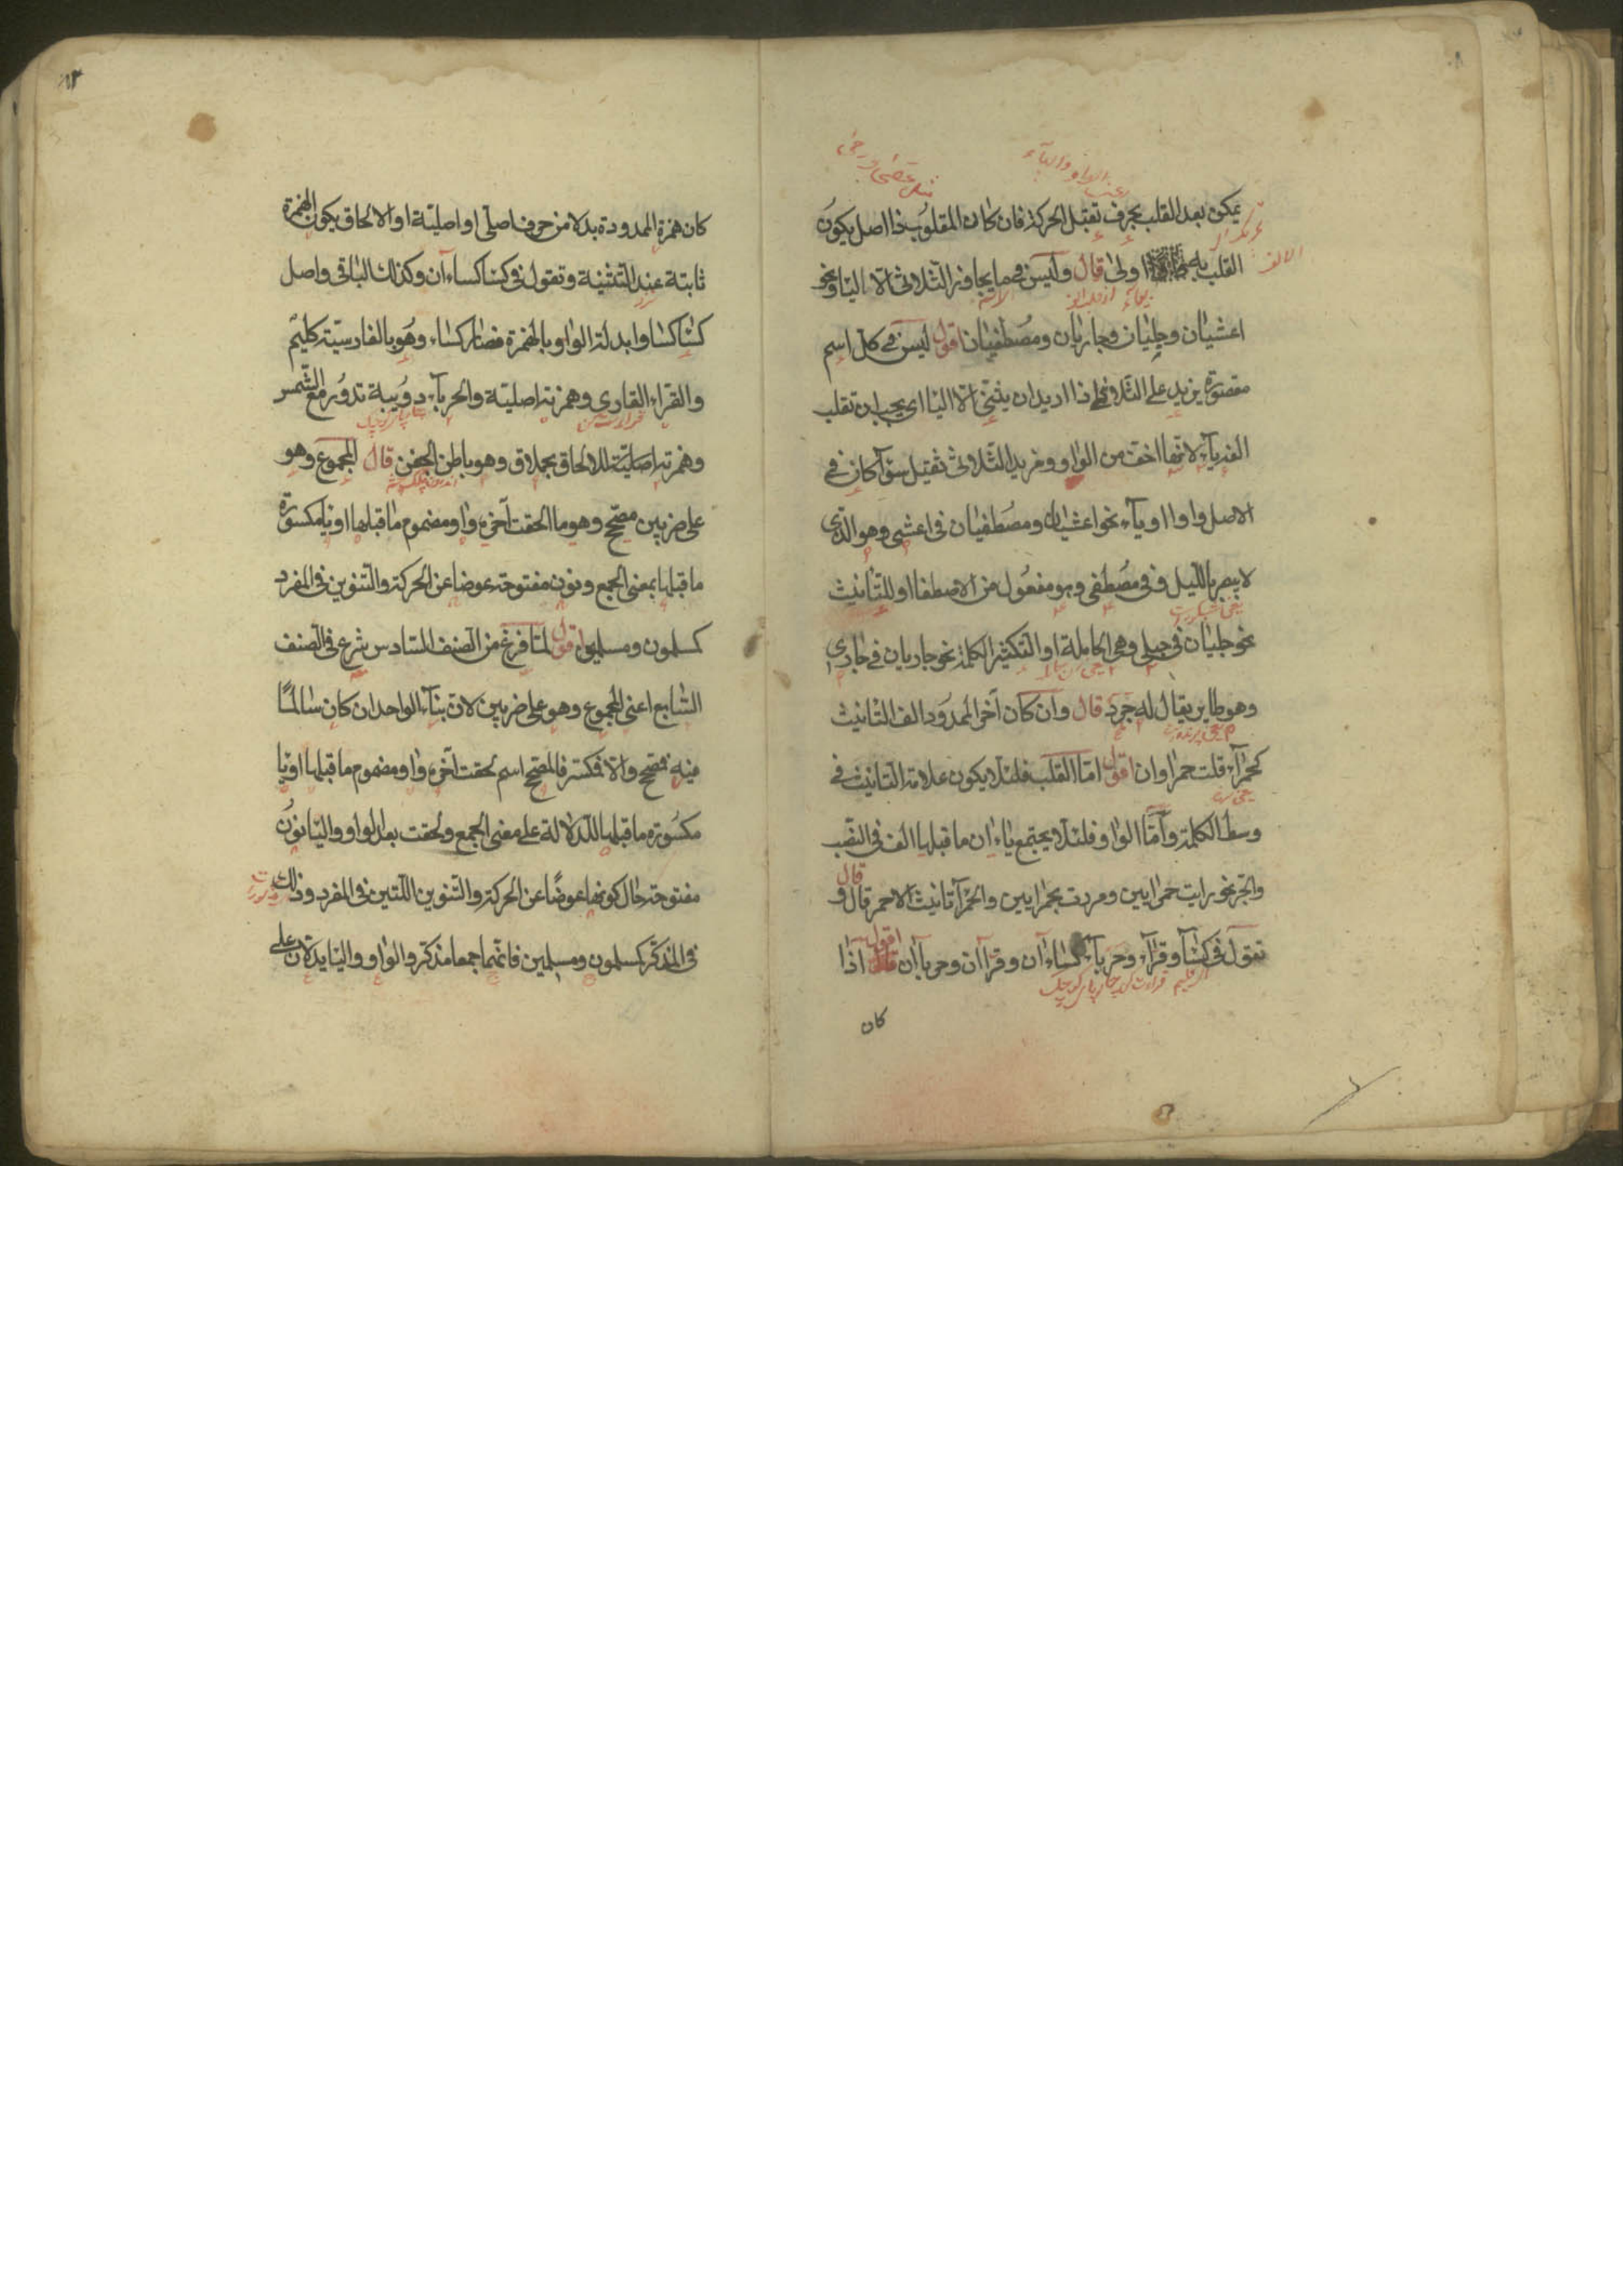 يمكن بعد القلب بحرف تقبل الحركة فان كان المقلوب ذا اصل يكون
القلب به اولى قال وليس فيما يجاوز الثلاثى الا اليا ونحو
اعشيان وحبليان وحباريان ومصطفيان اقول ليس فى كل اسم
مقصورة يزيد على الثلاثى اذا اريد ان يثنى الا اليا اى يجب ان تقلب
الفه ياء لانها اخف من الواو ومزيد الثلاثى ثقيل سوآ كان فى
الاصل واوا او يآء نحو اعشيان ومصطفيان فى اعشى وهو الذى
لا يبصر بالليل وفى مصطفى وهو مفعول من الاصطفا او للتانيث
نحو حبليان فى حبلى وهى الحاملة او لتكثير الكلمة نحو حباريان فى حبارى
وهو طاير يقال له جرد قال وان كان آخر الممدود الف التانيث
كحمرآء قلت حمراوان اقول اما القلب فلئلا يكون علامة التانيث فى
وسط الكلمة وآما الواو فلئلا يجتمع ياءان ما قبلها الف فى النصب
والجر نحو رايت حمرايين ومررت بحمرايين والحمرآ تانيث الاحمر قال و
تقول فى كسآ وقرآء وحربآء كساءآن وقراآن وحرباآن اقول اذا
كان
كان همزة الممدودة بدلا من حرف اصلى او اصلية او الالحاق يكون الهمزة
ثابتة عند التثنية وتقول فى كسا كساءآن وكذلك الباقى واصل
كسا كساو ابدلة الواو بالهمزة فصار كساء وهو بالفارسية كليم
والقراء القارى وهمزته اصلية والحربآء دويبة تدور مع الشمس
وهمزته اصلية للالحاق بحملاق وهو باطن الجفن قال المجموع وهو
على ضربين مصحح وهو ما الحقت آخره واو مضموم ما قبلها او يا مكسورة
ما قبلها بمعنى الجمع ونون مفتوحة عوضا عن الحركة والتنوين فى المفرد
كمسلمون ومسلمين اقول لما فرغ من الصنف السادس شرع فى الصنف
السابع اعنى المجموع وهو على ضربين لان بنآء الواحد ان كان سالمًا
فيه فمصحح والا فمكسر فالمصحح اسم لحقت آخره واو مضموم ما قبلها او يا
مكسورة ما قبلها للدلالة على معنى الجمع ولحقت بعد الواو واليا نون
مفتوحة حال كونها عوضًا عن الحركة والتنوين اللتين فى المفرد وذلك
فى المذكر كمسلمون ومسلمين فانهما جمعا مذكر والواو واليا يدلان على